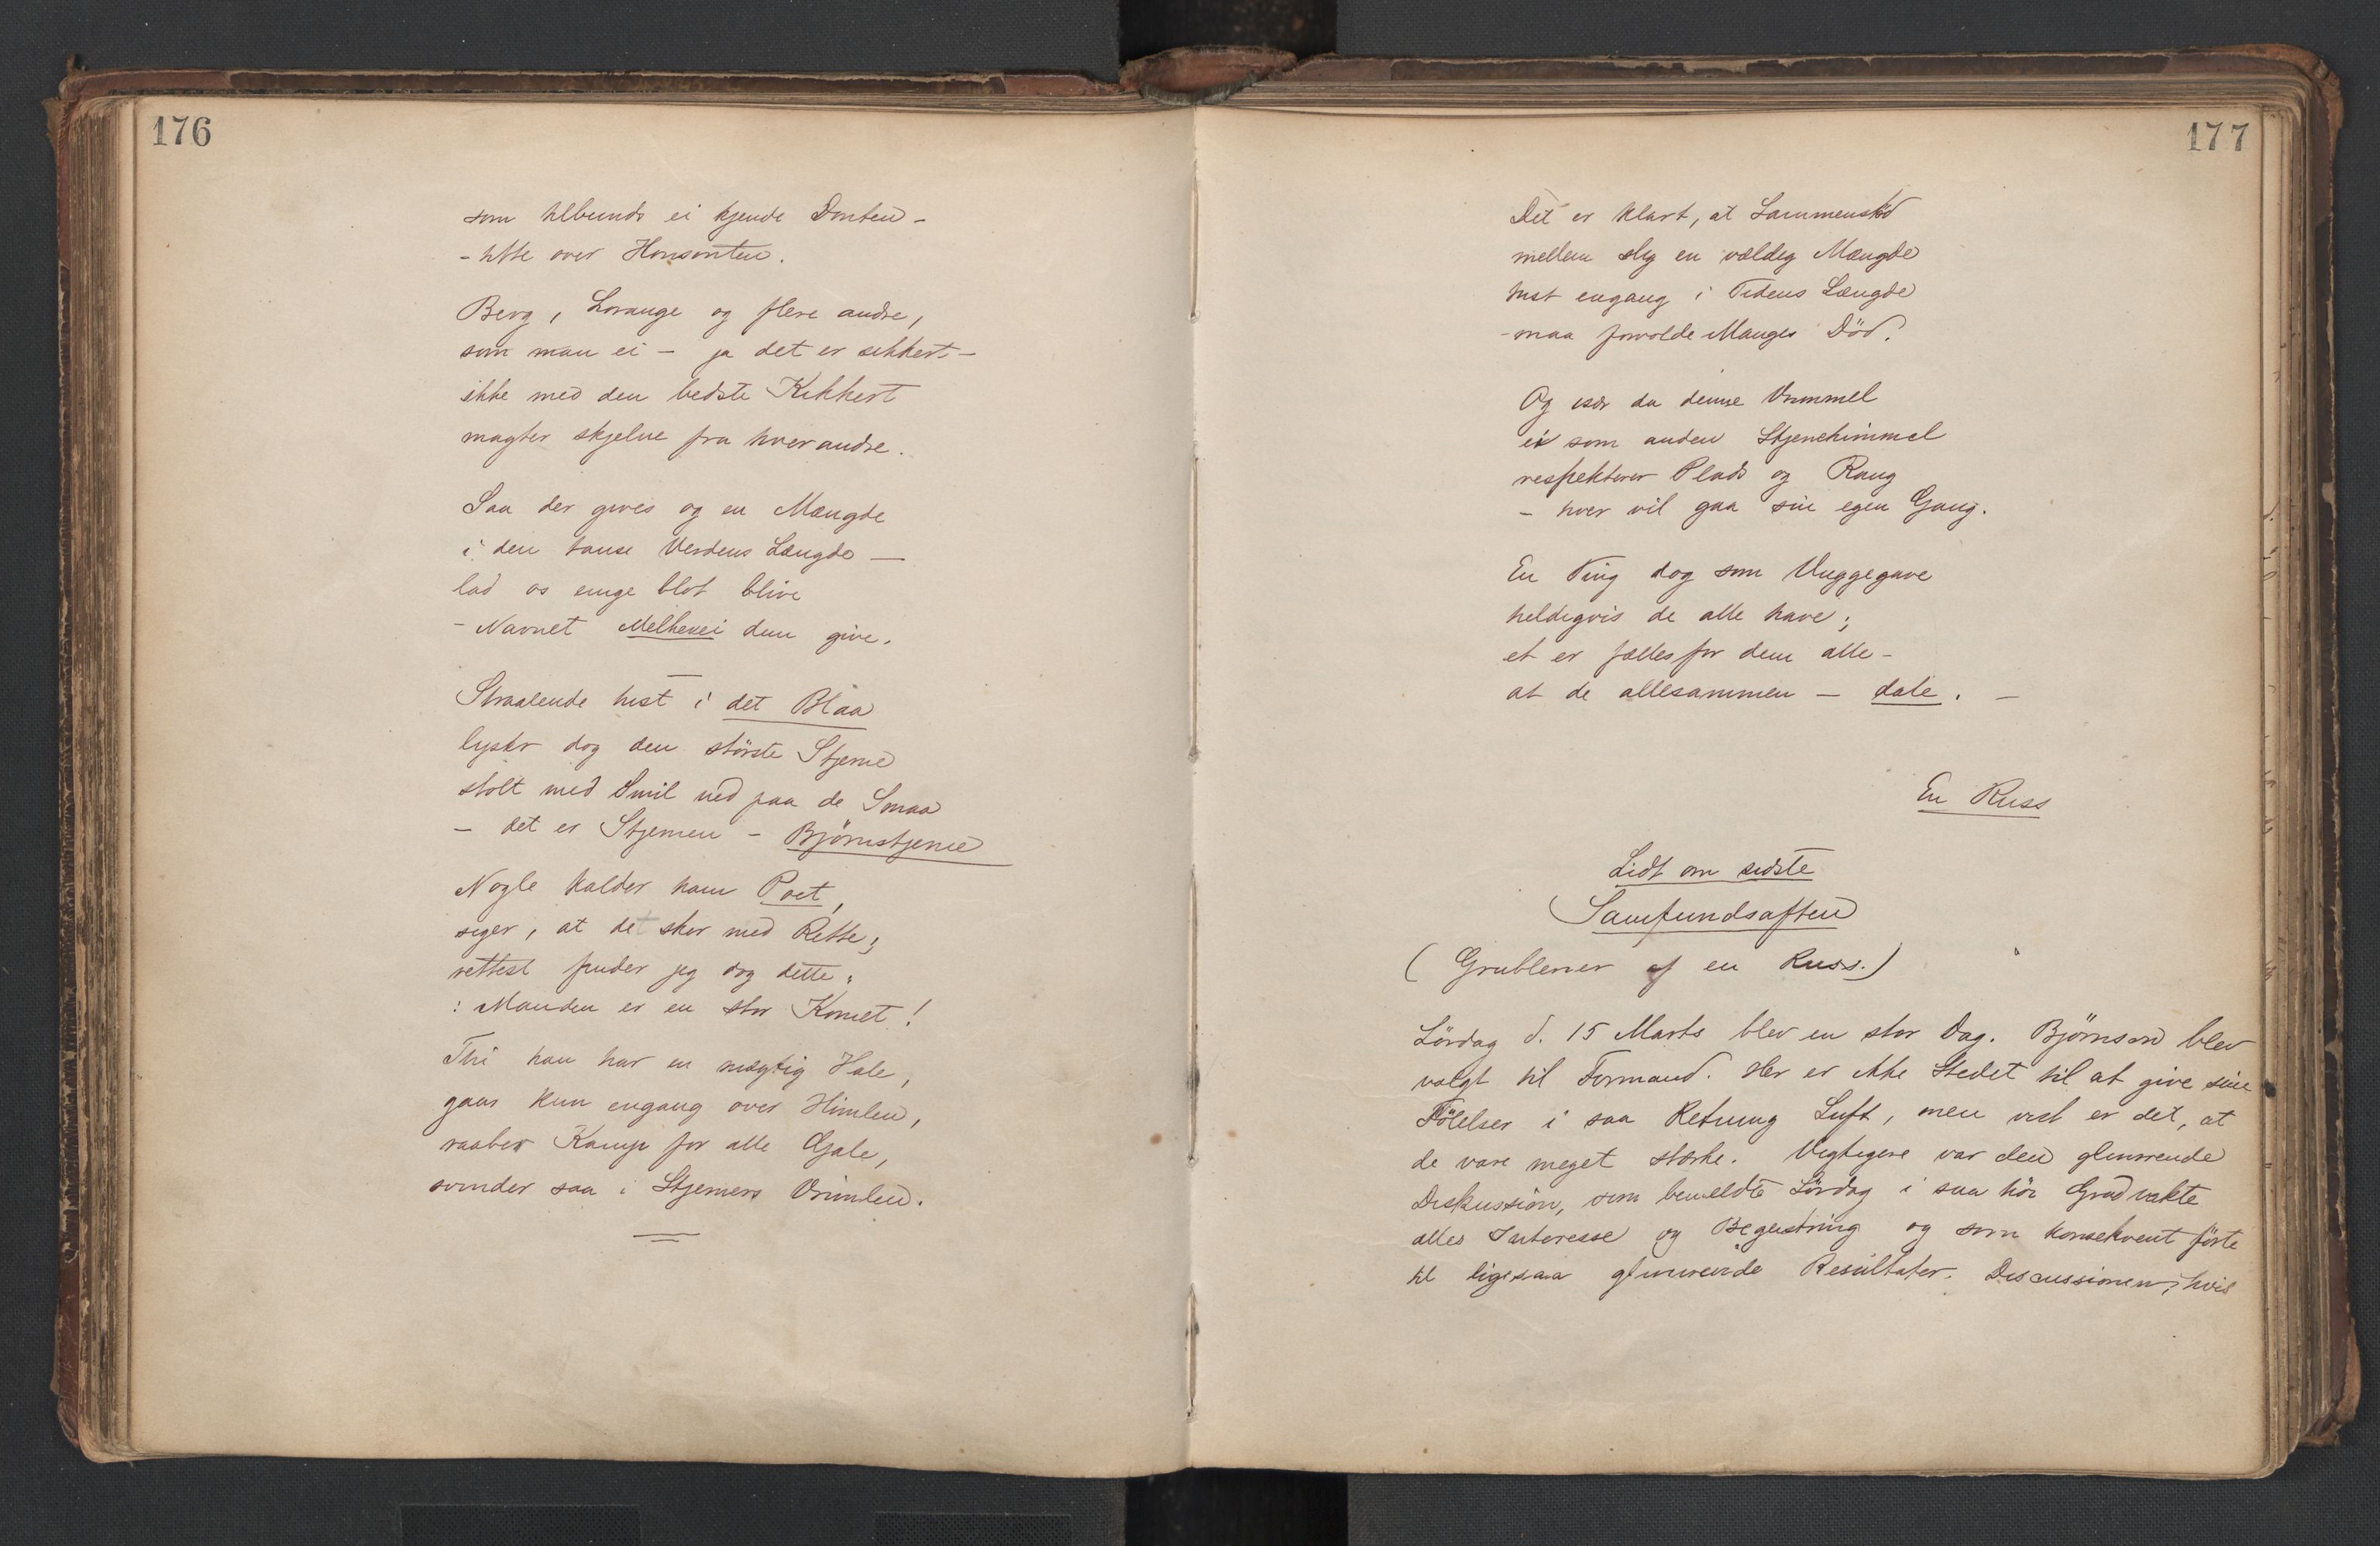 176
som tilbunds ei kjende Donten –
– titte over Horisonten.
Berg, Lorange og flere andre,
som man ei – ja det er sikkert –
ikke med den bedste Kikkert
magter skjelne fra hverandre.
Saa der gives og en Mængde
i den tause Verdens Længde —
lad os enige blot blive
– Navnet Melkevei dem give.
Straalende hist i det Blaa
lyser dog den störste Stjerne
stolt med Smil ned paa de Smaa
– det er Stjernen – Björnstjerne
Nogle kalder ham Poet,
siger, at de sker med Rette;
rettest finder jeg dog dette:
: Manden er en stor Komet!
Thi han har en mægtig Hale,
gaar kun engang over Himlen,
raaber Kamp for alle Gale,
svinder saa i Stjerners Vrimlen.
177
Det er klart, at Sammenstöd
mellem slig en vældig Mængde
hist engang i Tidens Længde
– maa forvolde Manges Död.
Og især da denne Vrimmel
ei som anden Stjernehimmel
respekterer Plads og Rang
– hver vil gaa sin egen Gang.
En Ting dog som Vuggegave
heldigvis de alle have;
et er fælles for dem alle –
at de allesammen – dale. —
En Russ
Lidt om sidste
Samfundsaften
(Grublerier af en Russ.)
Lördag d. 15 Marts blev en stor Dag. Björnson blev
valgt til Formand. Her er ikke Stedet til at give sine
Fölelser i saa Retning Luft, men vist er det, at
de vare meget stærke. Vigtigere var den glimrende
Diskussion, som bemeldte Lördag i saa höi Grad vakte
alles Interesse og Begeistring og som konsekvent förte
til ligesaa glimrende Resultater. Discussionen, hvis